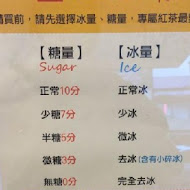 購買前,請先選擇冰量、糖量,專屬紅茶最
【糖量】 【冰量】
Sugar Ice
正常10分 正常冰
少糖7分 少冰
半糖5分 微冰
微糖3分 去冰(含有小碎冰)
無糖0分 完全去冰